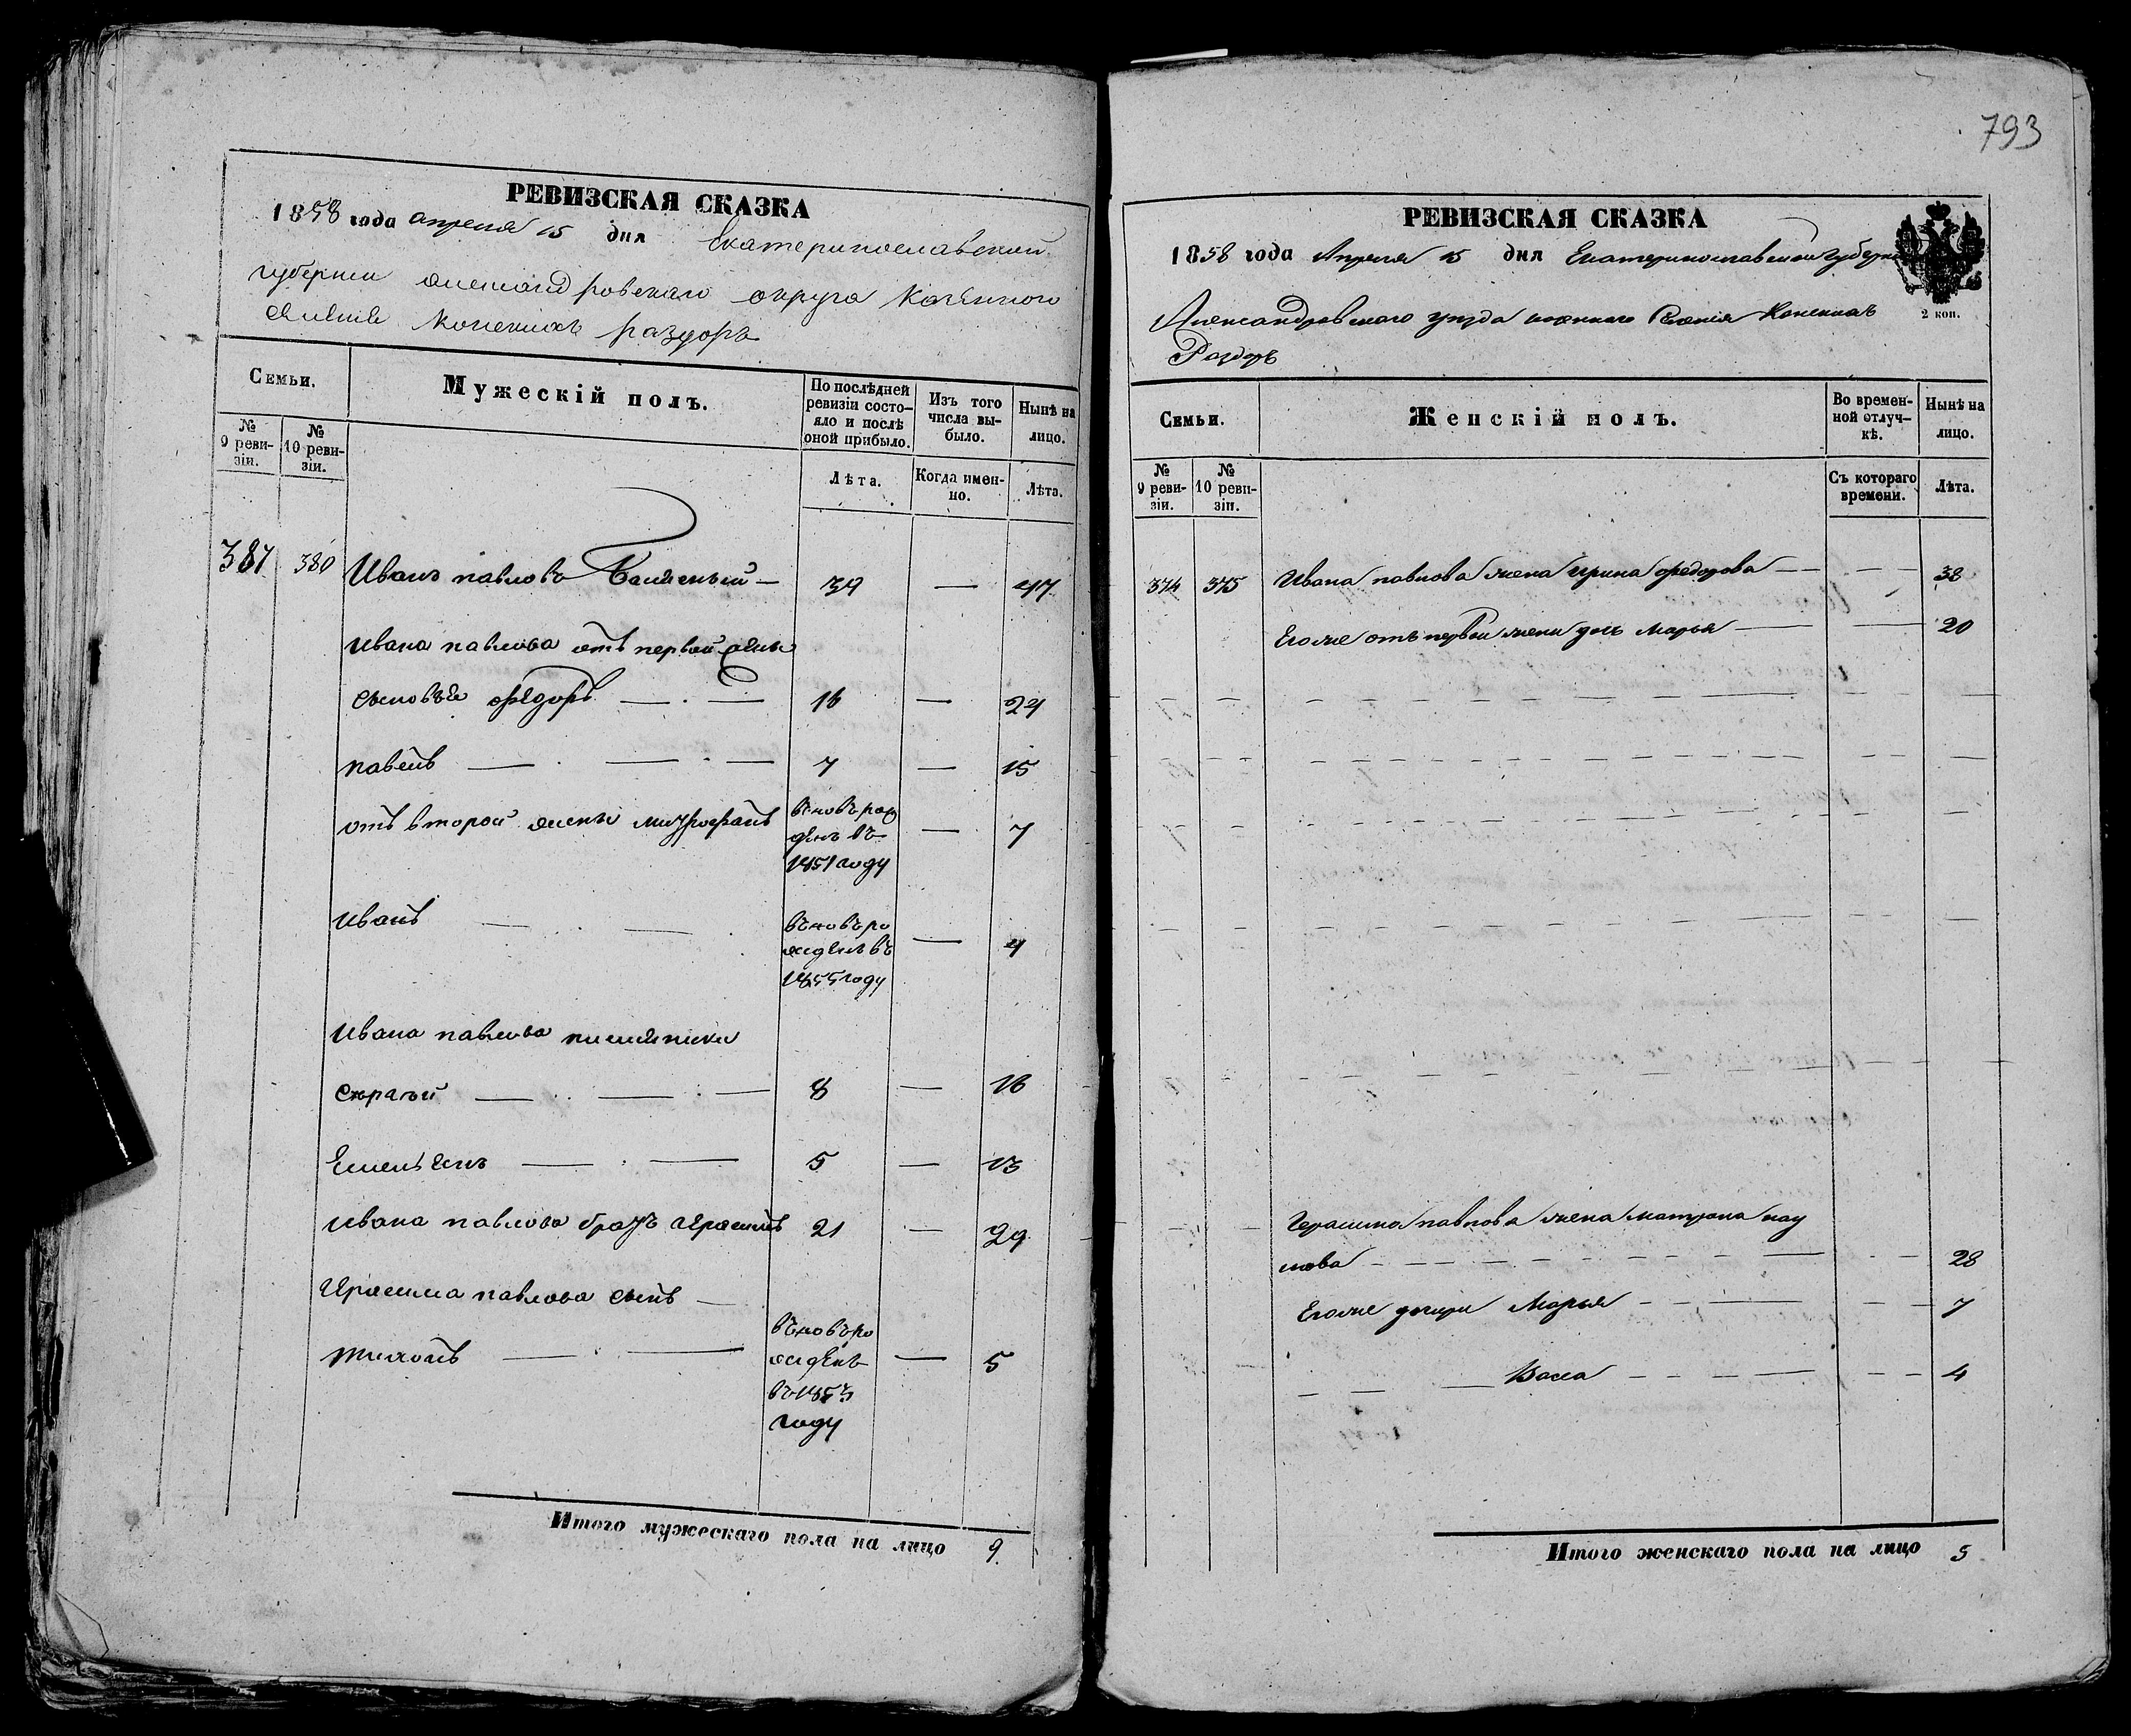 793
РЕВИЗСКАЯ СКАЗКА
1858 года апреля 15 дня Екатеринославской
губернии александровскаго округа Казенного
селения конскихъ раздоръ
Семьи.
Мужескій полъ.
По послѣдней ревизіи состо-яло и послѣ оной прибыло.
Изъ того числа вы-было.
Нынѣ на лицо.
№ 9 реви-зіи.
№ 10 реви-зіи.
Лѣта.
Когда имен-но.
Лѣта.
387 380 Иванъ павловъ — 39 — 47
Ивана павлова отъ первой жены
сыновья федоръ — 16 — 24
павелъ — 7 — 15
отъ второй жены митрофанъ вновь рож денъ въ 1851 году — 7
Иванъ — вновь ро жденъ въ 1855 году — 4
Ивана павлова племяники
— 8 — 16
Емельянъ — 5 — 13
Ивана павлова братъ Ирасимъ 21 — 29
Ирасима павлова сынъ —
тихонъ — вновь ро жденъ въ 1853 году — 5
Итого мужескаго пола на лицо 9.
РЕВИЗСКАЯ СКАЗКА
1858 года Апреля 15 дня Екатеринославской губерніи
2 коп.
Александровскаго уезда казеннаго Селенія Конскихъ
Раздоръ
Семьи.
Женскій полъ.
Во времен-ной отлуч-кѣ.
Нынѣ на лицо.
№ 9 реви-зіи.
№ 10 реви-зіи.
Съ котораго времени.
Лѣта.
374 375 Ивана павлова жена Ирина федорова — 38
Егоже отъ первой жены дочь Марья — 20
Герасима павлова жена матрона нау
мова — 28
Егоже дочери Марья — 7
Васса — 4
Итого женскаго пола на лицо 5